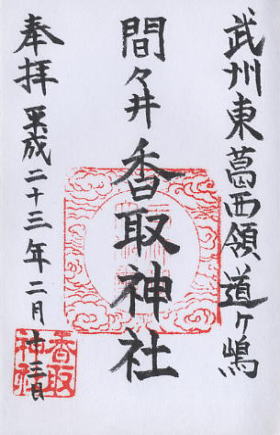 武州東葛西領道ヶ嶋
間々井香取神社
奉拝平成二十三年二月十三日
香取
神社